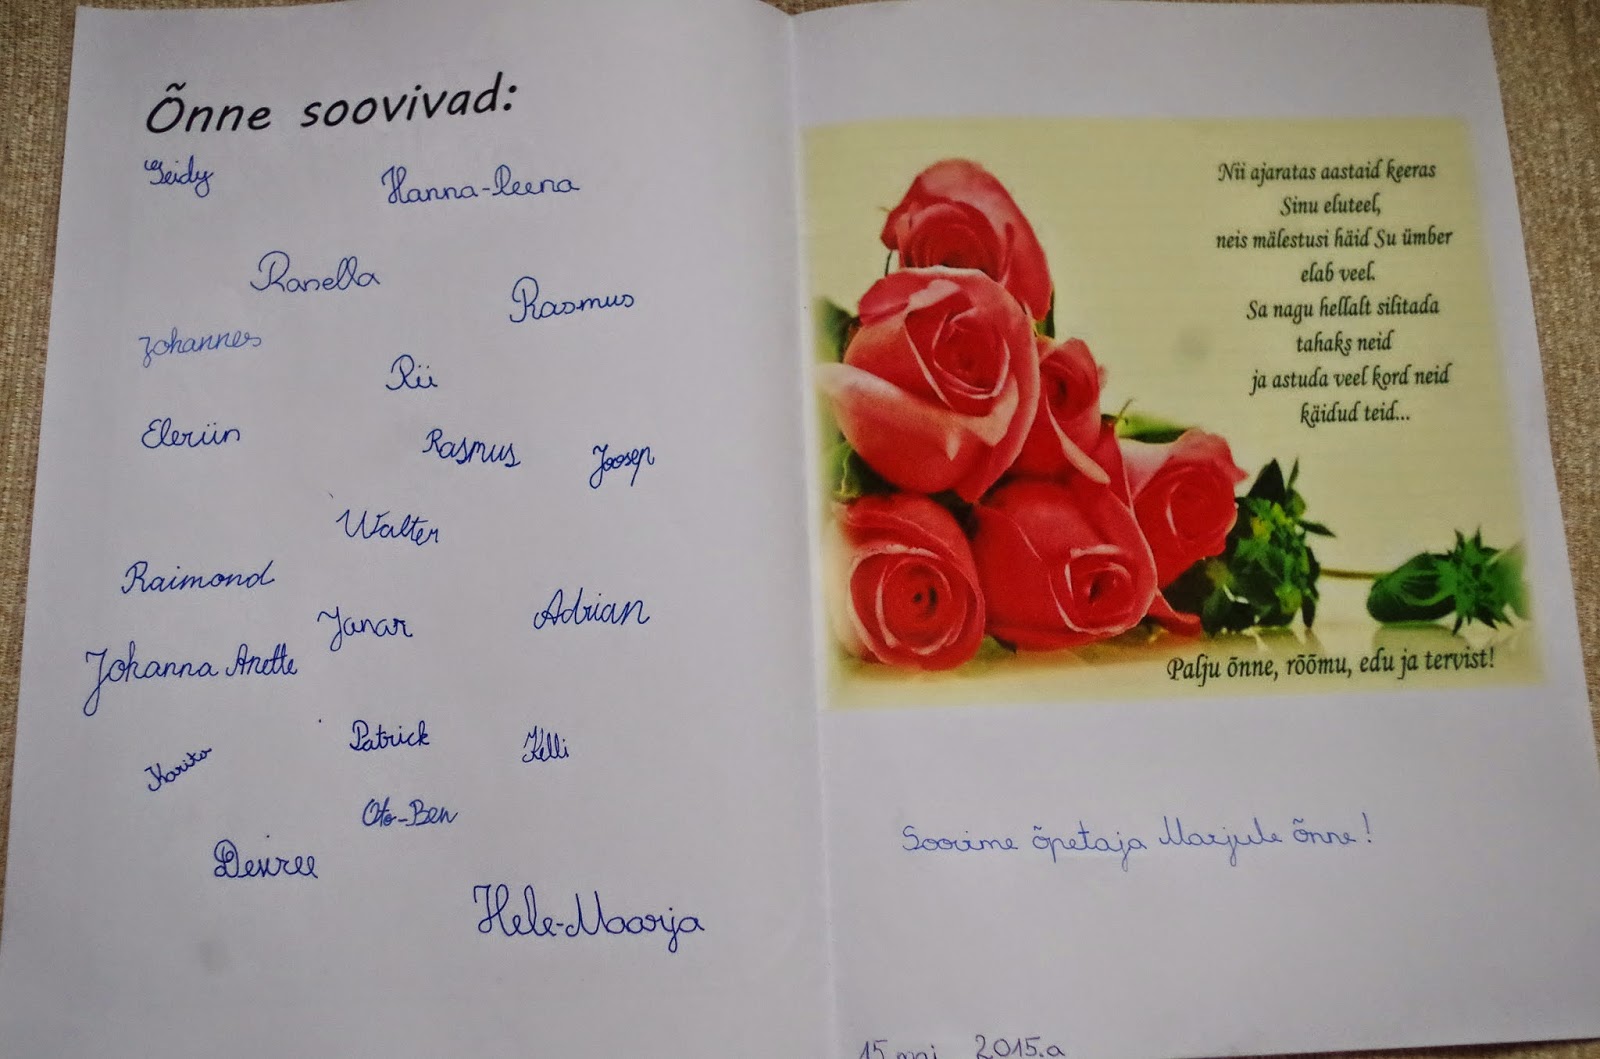 Õnne soovivad:
Geidy
Hanna-Leena
Ranella
Rasmus
Johannes
Rii
Eleriin
Rasmus
Joosep
Walter
Raimond
Janar
Adrian
Johanna Anette
Patrick
Kelli
Oto-Ben
Desiree
Hele-Maarja
Nii ajaratas aastaid keeras
Sinu eluteel,
neis mälestusi häid Su ümber
elab veel.
Sa nagu hellalt silitada
tahaks neid
ja astuda veel kord neid
käidud teid...
Palju õnne, rõõmu, edu ja tervist!
Soovime õpetaja Marjule õnne!
15 mai 2015.a